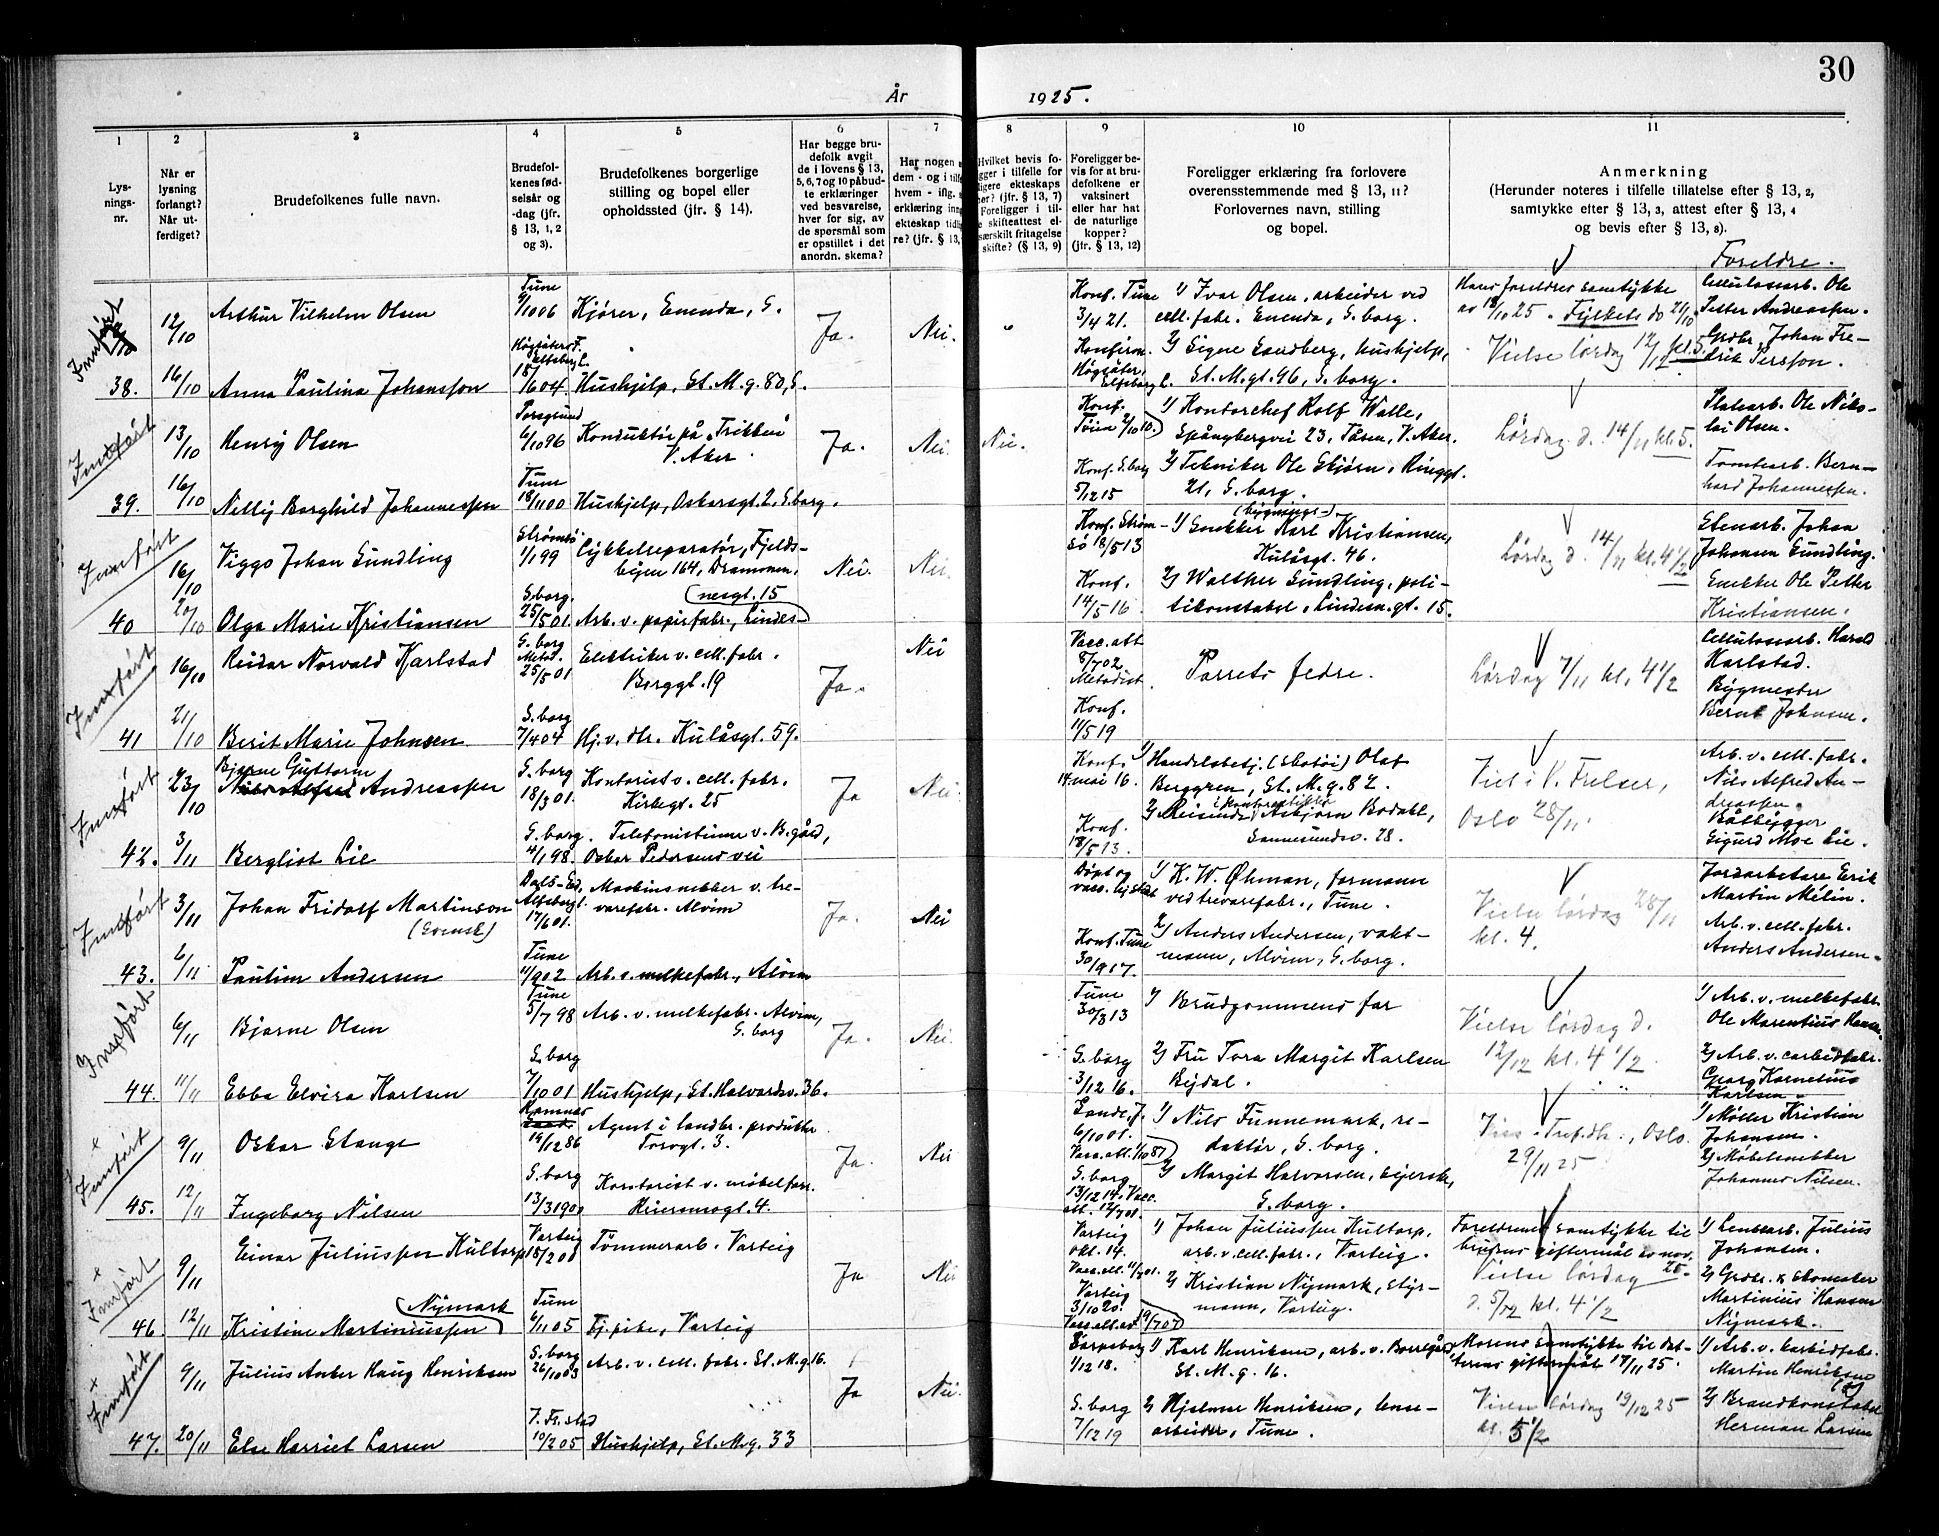 30
År 1925.
1 2 3 4 5 6 7 8 9 10 11
Lys-
nings-
nr.
Når er
lysning
forlangt?
Når ut-
ferdiget?
Brudefolkenes fulle navn.
Brudefol-
kenes fød-
selsår og
-dag (jfr.
§ 13, 1, 2
og 3).
Brudefolkenes borgerlige
stilling og bopel eller
opholdssted (jfr. § 14).
Har begge bru-
defolk avgit
de i lovens § 13,
5, 6, 7 og 10 påbud-
te erklæringer
ved besvarelse,
hver for sig, av
de spørsmål som
er opstillet i det
anordn. skema?
Har nogen
dem - og i
hvem - iflg.
erklæring
ekteskap
re? (jfr. § 13,
Hvilket bevis fo-
ligger i tilfelle for
ligere ekteskaps
(§ 13, 7)
Foreligger i til-
skifteattest el-
særskilt fritagelse
skifte? (§ 13, 9)
Foreligger be-
vis for at bru-
defolkene er
vaksinert
eller har hat
de naturlige
kopper?
(jfr. § 13, 12)
Foreligger erklæring fra forlovere
overensstemmende med § 13, 11?
Forlovernes navn, stilling
og bopel.
Anmerkning
(Herunder noteres i tilfelle tillatelse efter § 13, 2,
samtykke efter § 13, 3, attest efter § 13, 4
og bevis efter § 13, 8).
Foreldre.
Innført
12/10 Arthur Vilhelm Olsen Tune 9/10 06 Kjører, Enenda, S. Ja. Nei. Konf. Tune 3/4 21. 1) Ivar Olsen, arbeider ved
cell. fabr. Enenda, S. borg. Hans foreldres samtykke
av 18/10 25. Fylkets do 21/10 Celluloseearb. Ole
Petter Andreassen.
38. 16/10 Anna Paulina Johansson 18/1 604. Hushjelp, St. M. g. 80, S. Konfirm. Högsäter, Elfsborg l. 2) Signe Sandberg, hushjelp,
St. M. gt. 96, S. borg. Vielse lørdag 12/12 kl. 5. Grdbr. Johan Fre-
drik Persson.
Innført
13/10 Henry Olsen Porsgrund 6/10 96 Konduktør på "Trikken"
V. Aker. Ja. Nei. Nei. Konf. Tøien 2/10 10. 1) Kontorchef Rolf Walle,
Spångbergvei 23, Tåsen, V. Aker. Lørdag d. 14/11 kl. 5. Platearb. Ole Niko-
lai Olsen.
39. 16/10 Nelly Borghild Johannessen Tune 18/11 00 Hushjelp, Oskarsgt. 2. S. borg. Konf. S. borg 5/12 15 2) Tekniker Ole Skjørn, Ringgt.
21, S. borg. Tomtearb. Bern-
hard Johannessen.
Innført
16/10 Viggo Johan Sundling Strømsø 1/1 99 Cykkelreparatør, Fjelds-
byen 164, Drammen. Nei. Nei. Konf. Strøm-
sø 18/5 13 1) Snekker Karl Kristiansen,
Kulåsgt. 46. Lørdag d. 14/11 kl. 4 1/2 Stenarb. Johan
Johansen Sundling.
40 20/10 Olga Marie Kristiansen S. borg. 25/5 01. Arb. v. papirfabr., Lindes-
nesgt. 15 Konf. 14/5 16 2) Walther Sundling, poli-
tikonstabel, Lindesn. gt. 15. Snekker Ole Petter
Kristiansen.
Innført
16/10 Reidar Norvald Karlstad S. borg Metod. 25/5 01 Elektriker v. cell. fabr.
Borggt. 19 Ja. Nei Vacc. att 8/7 02 Metodist. Parrets fedre. Lørdag 7/11 kl. 4 1/2 Cellulosearb. Harald
Karlstad.
41 21/10 Berit Marie Johnsen S. borg 7/4 04 Hj. v. hr. Kulåsgt. 59. Konf. 11/5 19 Bygmester
Bernt Johnsen.
Innført
23/10 Bjarne Guttorm
Andreassen S. borg. 18/3 01. Kontorist v. cell. fabr.
Kirkegt. 25 Ja Nei. Konf. 14. mai 16. 1) Handelsbetj. (skotøi) Olaf
Berggren, St. M. g. 82. Viel. i V. Frelser,
Oslo 28/11. Arb. v. cell. fabr.
Nils Alfred An-
dreassen.
42. 3/11 Bergliot Lie S. borg. 4/1 98. Telefonistinne v. B. gård,
Oskar Pedersens vei Konf. 18/5 13. 2) Reisende i kontorartikler Asbjørn Bodahl,
Sannesundsv. 28. Båtbygger
Sigurd Moe Lie.
Innført
3/11 Johan Fridolf Martinson
(Svensk) Dals-Ed, Alfsborg l. 17/6 01. Maskinsnekker v. tre-
varefabr. Alvim Ja. Nei Døpt og
vacc. 1) K. W. Öhman, formann
ved trevarefabr., Tune. Vielse lørdag 28/11
kl. 4. Jordarbetare Erik
Martin Melin.
43. 6/11 Paulim Andersen Tune 11/9 02 Arb. v. melkefabr., Alvim Konf. Tune 30/9 17. 2) Anders Andersen, vakt-
mann, Alvim, S. borg. Arb. v. cell. fabr.
Anders Andersen.
Innført
6/11 Bjarne Olsen Tune 5/7 98 Arb. v. melkefabr. Alvim,
S. borg Ja. Nei. Tune 30/3 13 1) Brudgommens far Vielse lørdag d.
12/12 kl. 4 1/2. 1) Arb. v. melkefabr.
Ole Marentius Hansen
44. 11/11 Ebba Elvira Karlsen S. borg 7/10 01 Hushjelp, St. Halvardsv. 36. S. borg 3/12 16. 2) Fru Tora Margit Karlsen
Bydal. 2) Arb. v. carbidfabr.
Georg Kornelius
Karlsen.
x Innført
9/11 Oskar Stange Ramnes 19/12 86 Agent i landbr. produkter
Torvgt. 3. Ja. Nei Sande, J. 6/10 01. Vacc. att. 1/10 87 1) Nils Tunnemark, re-
daktør, S. borg. Vies i Tref. dh., Oslo.
29/11 25 1) Møller Kristian
Johansen.
45. 12/11 Ingeborg Nilsen S. borg 13/3 1900 Kontorist v. møbelforr.
S. borg 13/12 14. Vacc. att. 12/7 01. 2) Margit Halvorsen,
S. borg. 2) Møbelsnekker
Johannes Nilsen.
x Innført
9/11 Einar Juliussen Hultorp Varteig 18/2 00 Tømmerarb. Varteig Ja Nei Varteig okt. 14. Vacc. att. 11/7 01. 1) Johan Juliussen Hultorp,
arb. v. cell. fabr., Varteig. Foreldrenes samtykke til
brurens giftermål av nov.
25. 1) Lensearb. Julius
Johansen.
46. 12/11 Kristine Martiniussen
Nymark Tune 6/11 05 Tj. pike, Varteig Varteig 3/10 20. Vacc. att. av 19/7 07 2) Kristian Nymark, styr-
mann, Varteig. Vielse lørdag
d. 5/12 kl. 4 1/2 2) Grdbr. & skomaker
Martinius Hansen
Nymark.
x Innført
9/11 Julius Anker Haug Henriksen S. borg 26/10 03 Arb. v. cell. fabr. St. M. g. 16. Ja Nei. Sarpsborg 1/12 18. 1) Karl Henriksen, arb. v. Borregård,
St. M. g. 16. Morens samtykke til dat-
terens giftermål 17/11 25. 1) Arb. v. karbidfabr.
Martin Henriksen
47. 20/11 Else Harriet Larsen Fr. stad 10/2 05 Hushjelp, St. M. g. 33 S. borg 7/12 19 2) Hjalmar Henriksen, lense-
arbeider, Tune. Vielse lørdag 19/12 25
kl. 5 1/2 2) Brandkonstabel
Herman Larsen